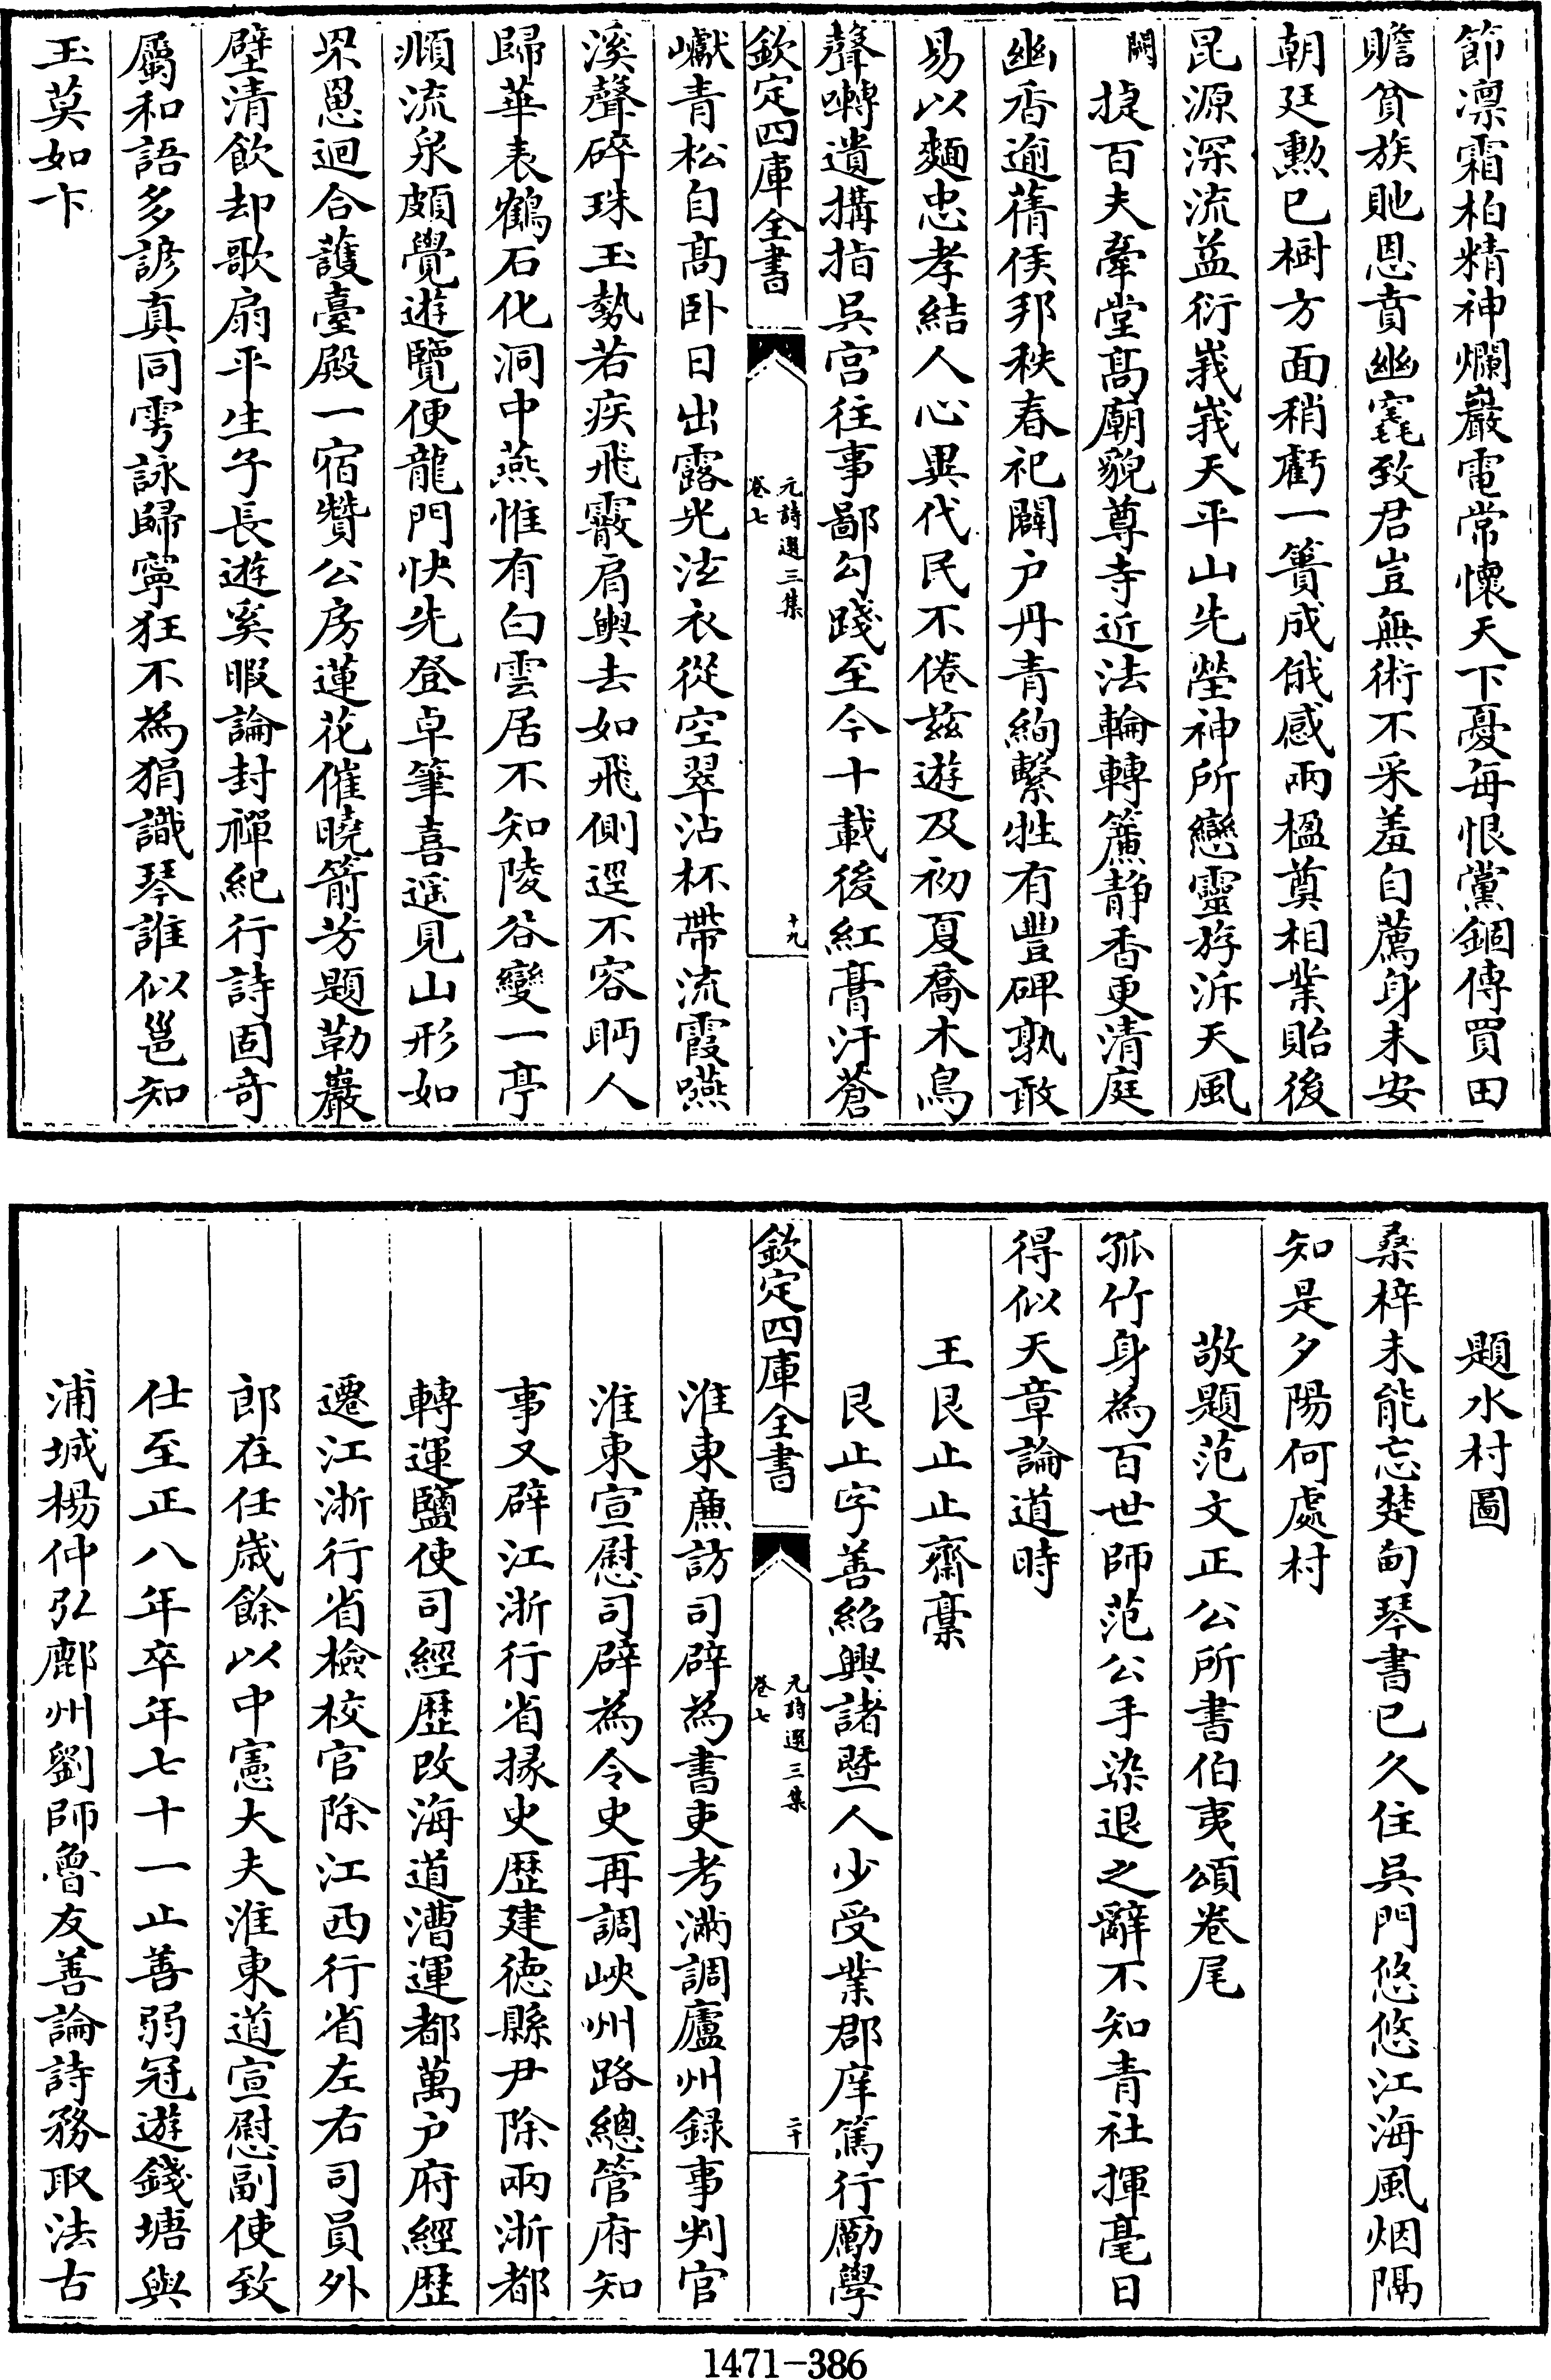 節凛霜柏精神爛巖電常懷天下憂每恨黨錮傳買田
贍貧族貤恩賁幽窀致君豈無術不采羞自薦身未安
朝廷勲已樹方面稍虧一簣成俄感兩楹奠相業貽後
昆源深流益衍峩峩天平山先塋神所戀靈斿泝天風
闕捷百夫牽堂髙廟貌尊寺近法輪轉簾静香更清庭
幽香逾蒨侯邦秩春祀闢户丹青絢繫牲有豐碑孰敢
易以麵忠孝結人心異代民不倦兹遊及初夏喬木鳥
聲囀遺搆指呉宫往事鄙勾踐至今十載後紅膏汙蒼
欽定四庫全書
元詩選三集
卷七
十九
巘青松自髙卧日出露光泫衣從空翠沾杯帶流霞嚥
溪聲碎珠玉勢若疾飛霰肩輿去如飛側逕不容眄人
歸華表鶴石化洞中燕惟有白雲居不知陵谷變一亭
頫流泉頗覺遊覽便龍門快先登卓筆喜遥見山形如
罘罳迴合䕶臺殿一宿贊公房蓮花催曉箭芳題勒巖
壁清飲却歌扇平生子長遊奚暇論封禪紀行詩固奇
屬和語多諺真同雩詠歸寧狂不為狷識琴誰似邕知
玉莫如卞
題水村圖
桑梓未能忘楚甸琴書已久住呉門悠悠江海風烟隔
知是夕陽何處村
敬題范文正公所書伯夷頌卷尾
孤竹身為百世師范公手染退之辭不知青社揮毫日
得似天章論道時
王艮止止齋稾
艮止字善紹興諸暨人少受業郡庠篤行勵學
欽定四庫全書
元詩選三集
卷七
二十
淮東亷訪司辟為書吏考滿調廬州録事判官
淮東宣慰司辟為令史再調峽州路總管府知
事又辟江浙行省掾史歴建徳縣尹除兩浙都
轉運鹽使司經歴改海道漕運都萬户府經歴
遷江浙行省檢校官除江西行省左右司員外
郎在任嵗餘以中憲大夫淮東道宣慰副使致
仕至正八年卒年七十一止善弱冠遊錢塘與
浦城楊仲弘鄜州劉師魯友善論詩務取法古
1471-386